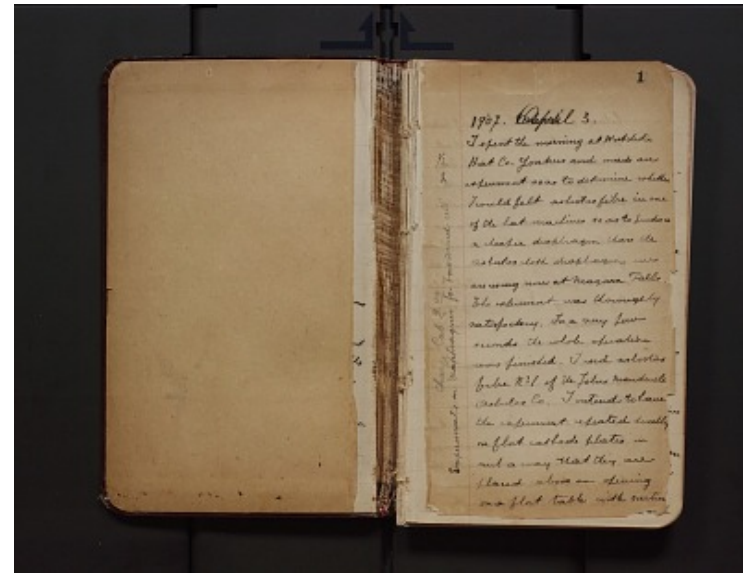 1
1907. April 3.
I spent the morning at
Hat Co. Yonkers and made an
experiment so as to determine whether
I could felt asbestos fibre in one
of the hat machines so as to produce
a cheaper diaphragm than the
asbestos cloth diaphragms we
are using now at Niagara Falls
The experiment was thoroughly
satisfactory. In a very few
seconds the whole operation
was finished. I used asbestos
fibre of the Johns Manville
Asbestos Co. I intend to have
the experiment repeated
on flat cathode plates in
such a way that they are
placed above an opening
on a flat table with suction
Experiments on diaphragms for